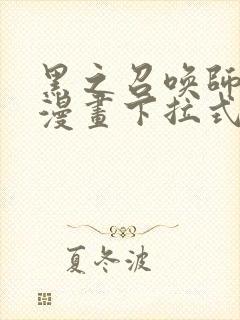 黑之召唤師
漫畫下拉式
夏冬波